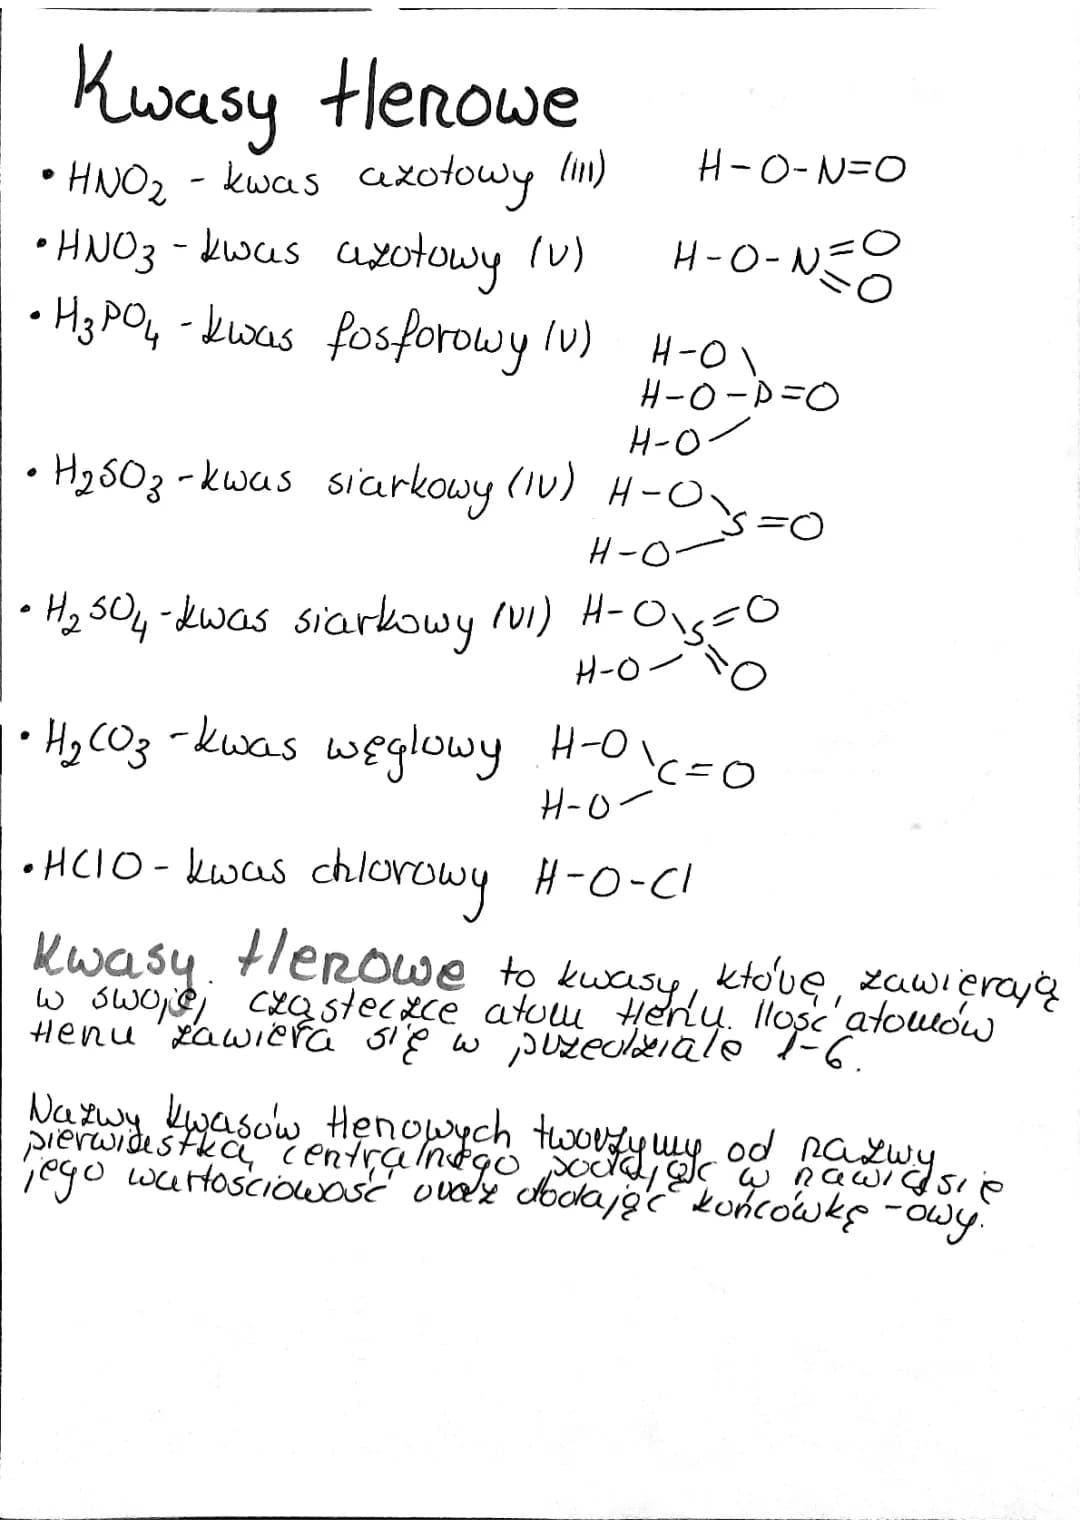 Kwasy tlenowe
• HNO2 - kwas azotowy (III) H-O-N=O
• HNO3 - kwas azotowy (V) H-O-N=O
=O
• H3PO4 - kwas fosforowy (V) H-O\
H-O-P=O
H-O/
• H2SO3 - kwas siarkowy (IV) H-O\
S=O
H-O/
• H2SO4 - kwas siarkowy (VI) H-O\S=O
H-O/ =O
• H2CO3 - kwas węglowy H-O\
C=O
H-O/
• HClO - kwas chlorowy H-O-Cl
Kwasy tlenowe to kwasy, które zawierają
w swojej cząsteczce atom tlenu. Ilość atomów
tlenu zawiera się w przedziale 1-6.
Nazwy kwasów tlenowych tworzymy od nazwy
pierwiastka centralnego podając w nawiasie
jego wartościowość oraz dodając końcówkę -owy.